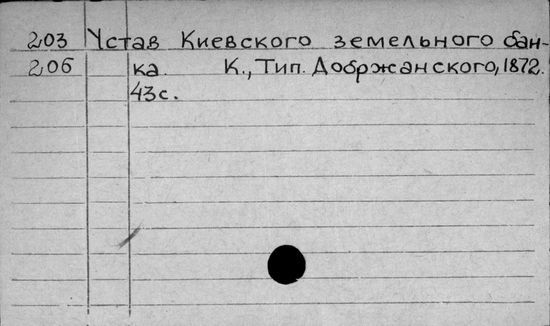 203 Устав Киевского земельного бан-
206 ка. К., Тип. Добржанского, 1872.
43с.